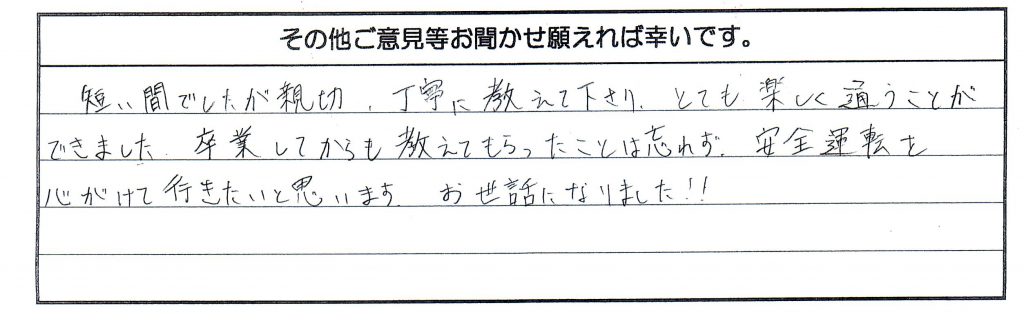 その他ご意見等お聞かせ願えれば幸いです。
短い間でしたが親切、丁寧に教えて下さり、とても楽しく通うことが
できました。卒業してからも教えてもらったことは忘れず、安全運転を
心がけて行きたいと思います。お世話になりました!!